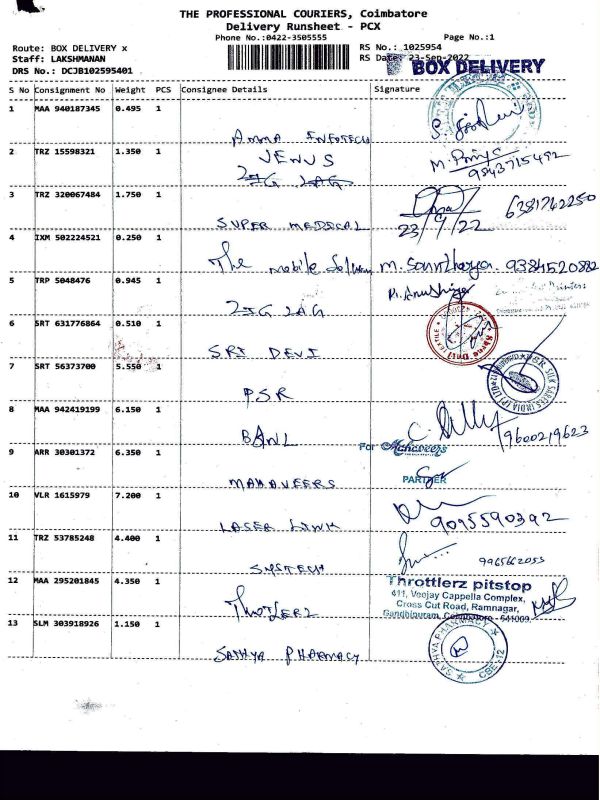 THE PROFESSIONAL COURIERS, Coimbatore
Delivery Runsheet - PCX
Phone No.:0422-3505555
Page No.:1
Route: BOX DELIVERY x
RS No.: 1025954
Staff: LAKSHMANAN
RS Date: 23-Sep-2022
BOX DELIVERY
DRS No.: DCJB102595401
S No Consignment No Weight PCS Consignee Details Signature
1 MAA 940187345 0.495 1
AMMA INFOTECH
2 TRZ 15598321 1.350 1
VENUS
ZIG ZAG
M. Priya
9843715492
3 TRZ 320067484 1.750 1
SUPER MEDICAL
23/9/22
6381762250
4 IXM 502224521 0.250 1
The mobile
M. Sountharya. 9384520882
5 TRP 5048476 0.945 1
ZIG ZAG
6 SRT 631776864 0.510 1
SRI DEVI
7 SRT 56373700 5.550 1
PSR
PSR SILK SAREES INDIA (P) LTD
8 MAA 942419199 6.150 1
BANL
9600219623
9 ARR 30301372 6.350 1
MAHAVEERS
For Mahaveers
PARTNER
10 VLR 1615979 7.200 1
LASER LINK
9095590392
11 TRZ 53785248 4.400 1
SYSTECH
9965662055
12 MAA 295201845 4.350 1
THROTLERZ
Throttlerz pitstop
411, Veejay Cappella Complex,
Cross Cut Road, Ramnagar,
Gandhipuram, Coimbatore - 641009
13 SLM 303918926 1.150 1
SATHYA PHARMACY
SATHYA PHARMACY
CBE-12